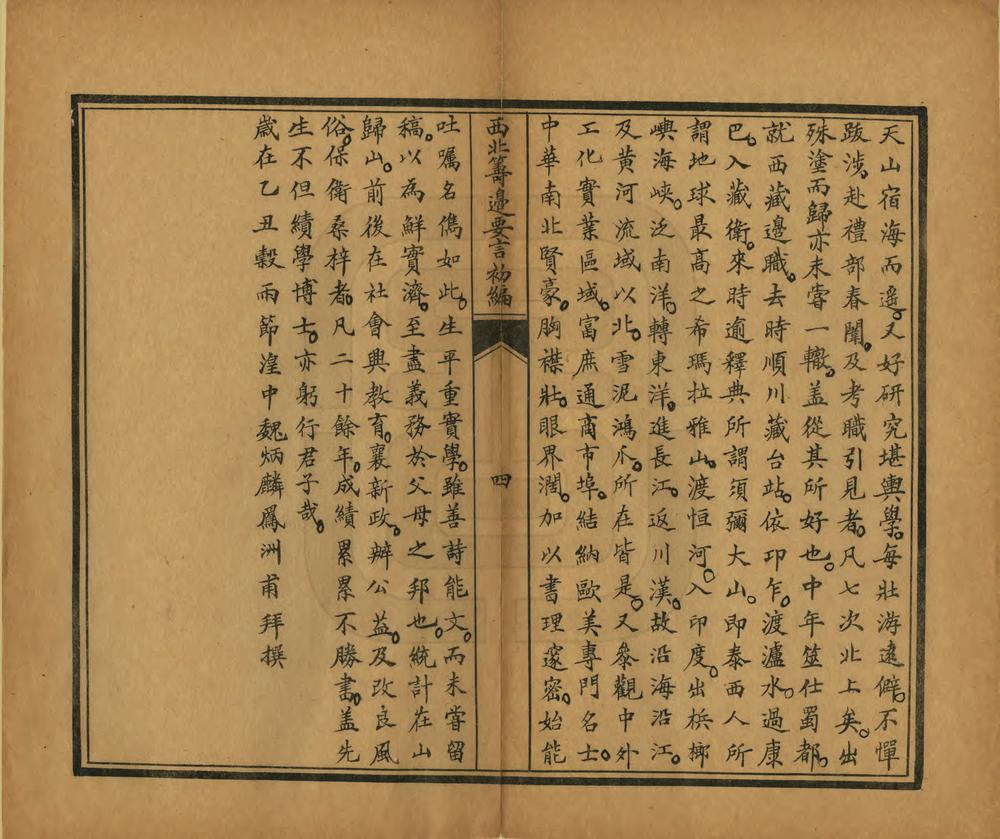 天山宿海而遥。又好研究堪輿學。每壯游遠僻。不憚
跋涉。赴禮部春闈。及考職引見者。凡七次北上矣。出
殊塗而歸。亦未嘗一轍。蓋從其所好也。中年筮仕蜀都。
就西藏邊職。去時順川藏台站。依卭乍。渡瀘水。過康
巴。入藏衛。來時逾釋典所謂須彌大山。即泰西人所
謂地球最高之希瑪拉雅山。渡恒河。入印度。出梹榔
嶼海峽。泛南洋。轉東洋。進長江。返川漢。故沿海沿江。
及黄河流域以北。雪泥鴻爪。所在皆是。又叅觀中外
工化實業區域。富庶通商市埠。結納歐美專門名士。
中華南北賢豪。胸襟壯。眼界濶。加以書理邃密。始能
西北籌邊要言初編
四
吐嘱名儁如此。生平重實學。雖善詩能文。而未嘗留
稿。以為鮮實濟。至盡義務於父母之邦也。統計在山
歸山。前後在社會興教育。襄新政。辦公益。及改良風
俗。保衛桑梓者。凡二十餘年。成績累累不勝書。蓋先
生不但績學博士。亦躬行君子哉。
歲在乙丑穀雨節湟中魏炳麟鳳洲甫拜撰